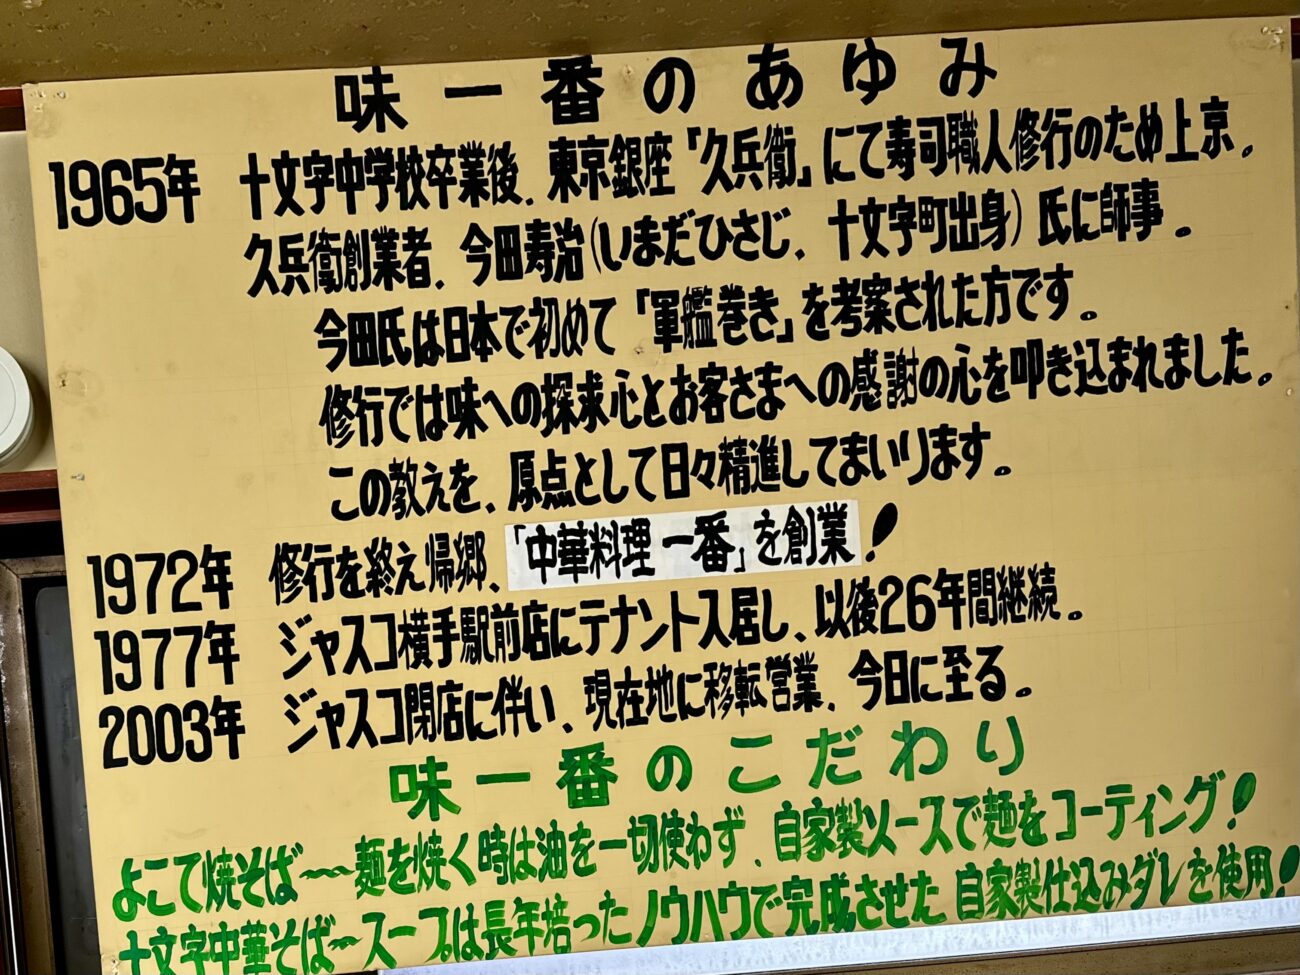 味一番のあゆみ
1965年 十文字中学校卒業後、東京銀座「久兵衛」にて寿司職人修行のため上京。
久兵衛創業者、今田寿治(いまだひさじ、十文字町出身)氏に師事。
今田氏は日本で初めて「軍艦巻き」を考案された方です。
修行では味への探求心とお客さまへの感謝の心を叩き込まれました。
この教えを、原点として日々精進してまいります。
1972年 修行を終え帰郷、「中華料理 一番」を創業!
1977年 ジャスコ横手駅前店にテナント入居し、以後26年間継続。
2003年 ジャスコ閉店に伴い、現在地に移転営業、今日に至る。
味一番のこだわり
よこて焼そば〜麺を焼く時は油を一切使わず、自家製ソースで麺をコーティング!
十文字中華そば〜スープは長年培ったノウハウで完成させた自家製仕込みダレを使用!